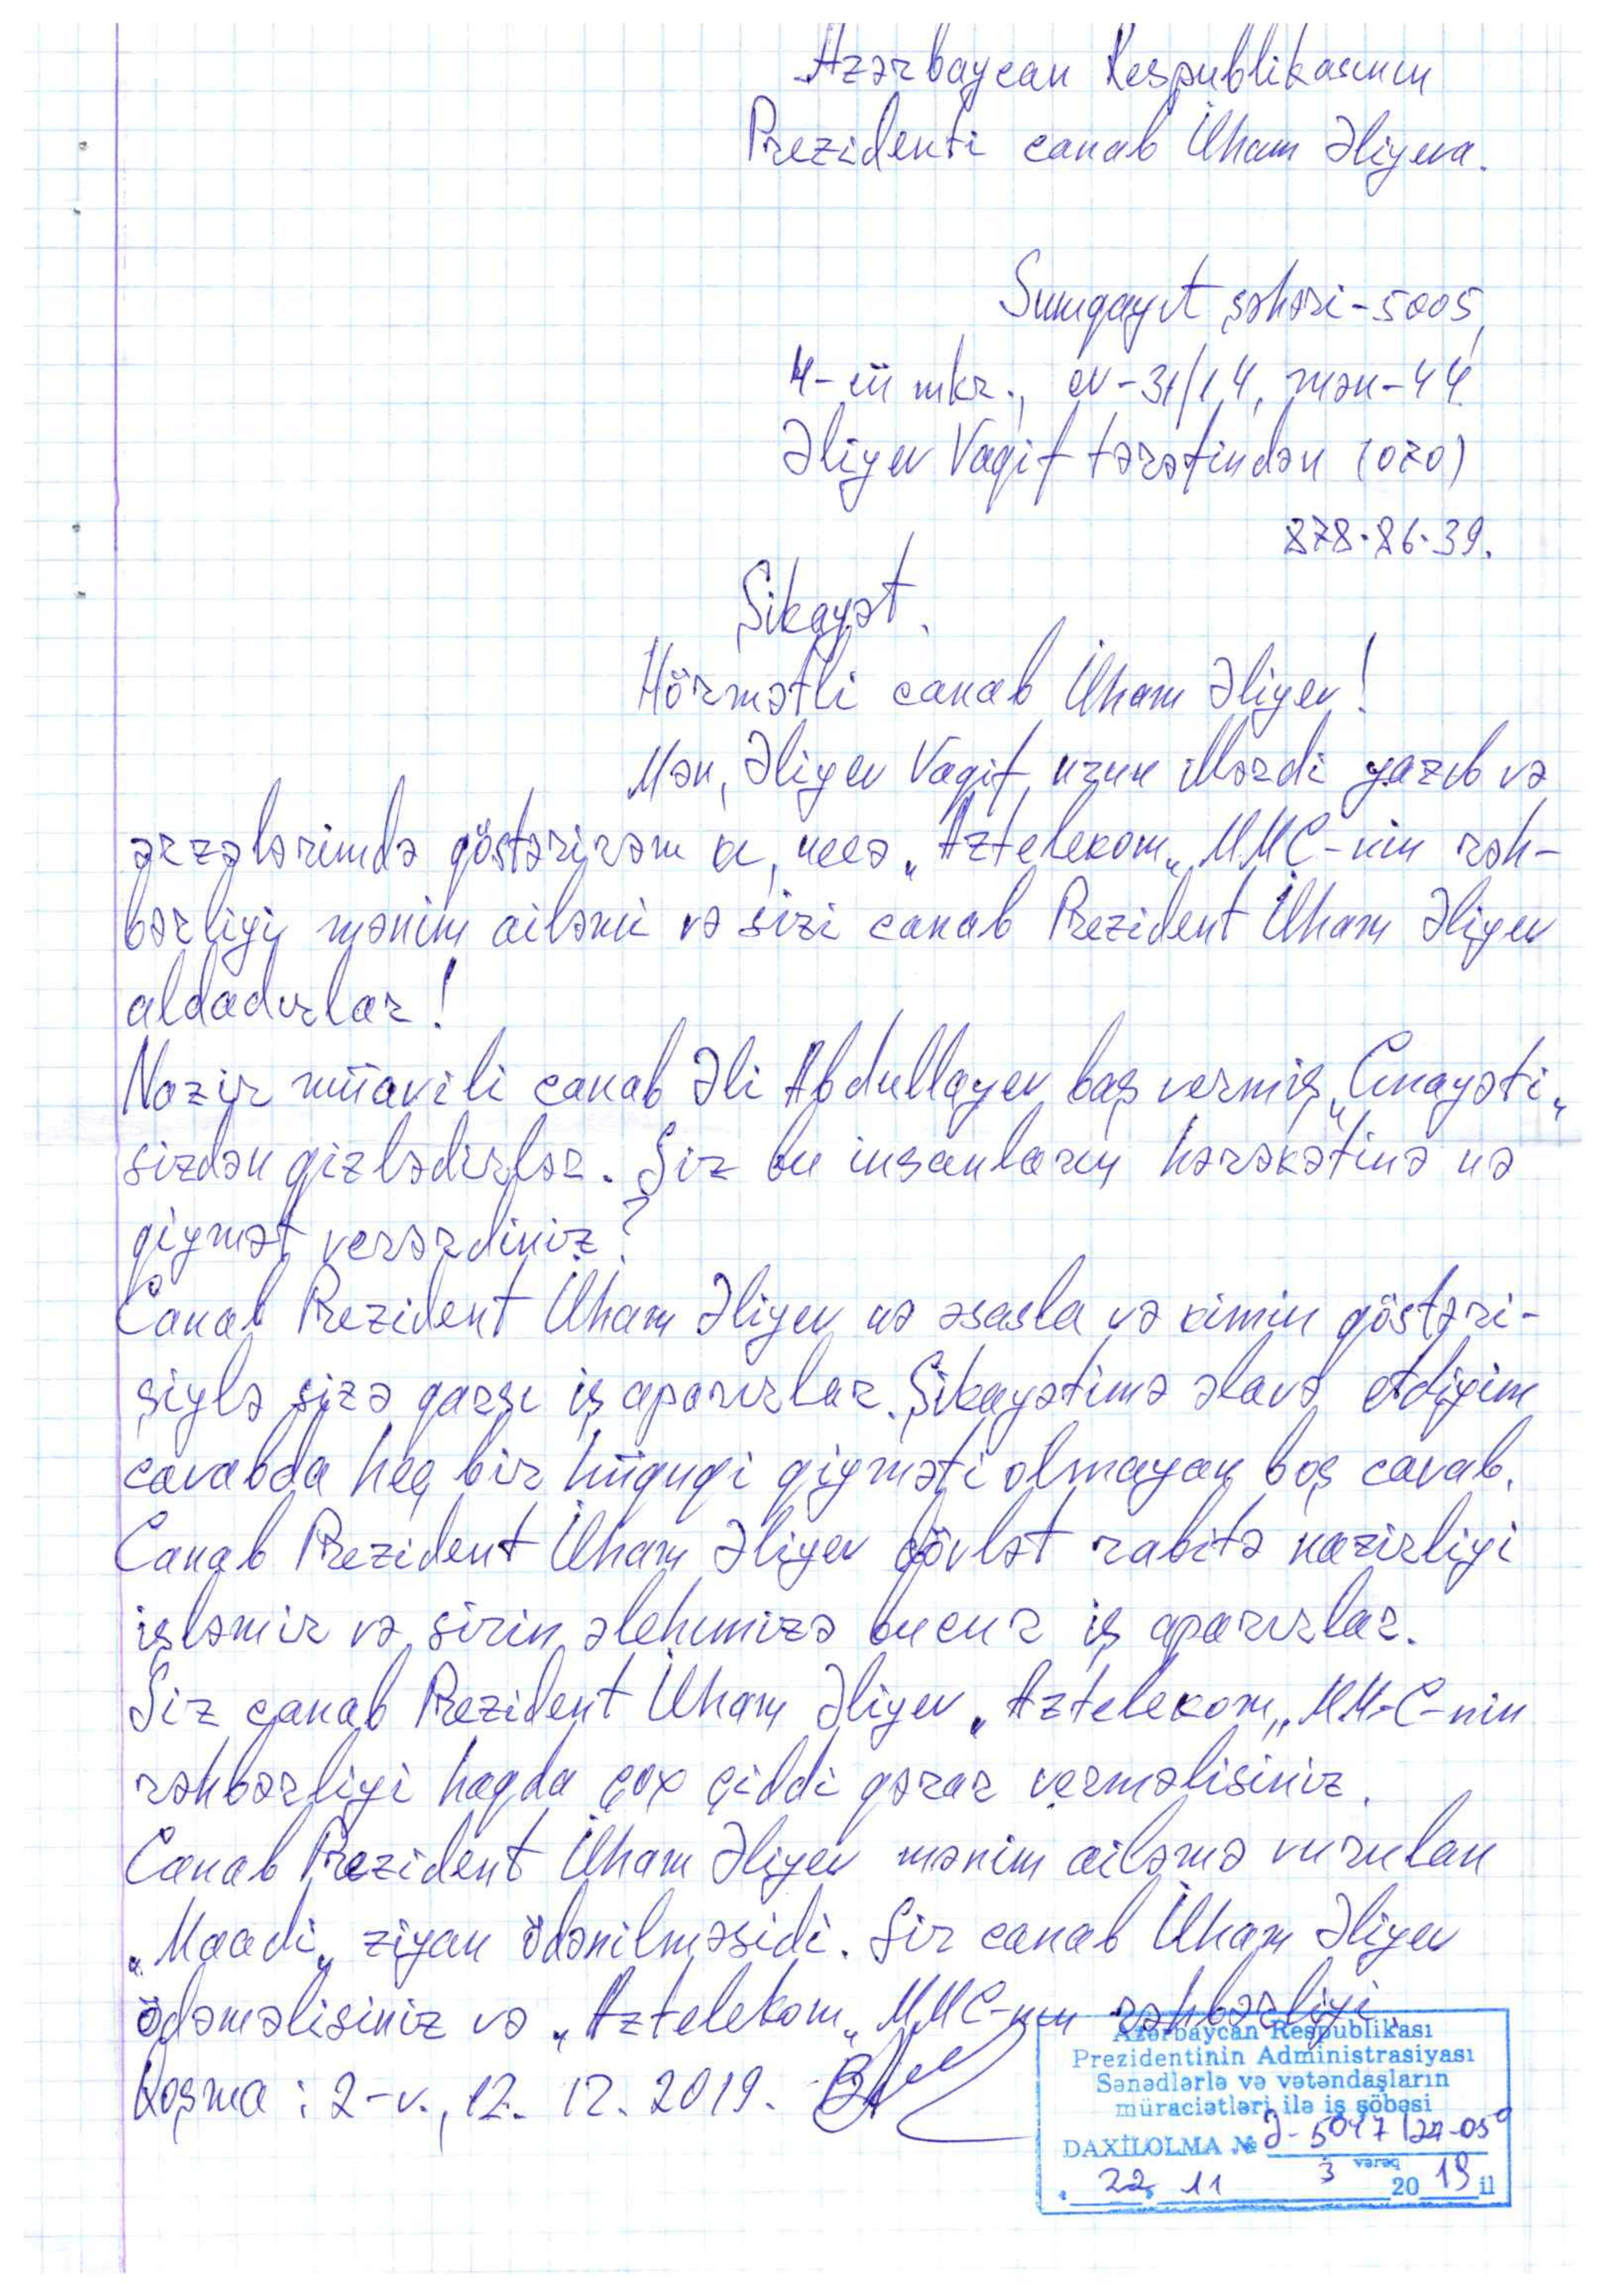 Azərbaycan Respublikasının
Prezidenti canab İlham Əliyeva.
Sumqayıt şəhəri-5005,
4-cü mkr., ev-31/14, mən-44.
Əliyev Vaqif tərəfindən (070)
878.86.39.
Şikayət.
Hörmətli canab İlham Əliyev!
Mən, Əliyev Vaqif, uzun illərdi yazıb və
ərzələrimdə göstərirəm ki, necə „Aztelekom„ MMC-nin rəh-
bərliyi mənim ailəmi və sizi canab Prezident İlham Əliyev
aldadırlar!
Nazir müavili canab Əli Abdullayev baş vermiş „Cinayəti„
sizdən gizlədirlər. Siz bu insanların hərəkətinə nə
qiymət verərdiniz?
Canab Prezident İlham Əliyev nə əsasla və kimin göstəri-
şiylə sizə qarşı iş aparırlar. Şikayətimə əlavə etdiyim
cavabda heç bir hüquqi qiyməti olmayan boş cavab.
Canab Prezident İlham Əliyev dövlət rabitə nazirliyi
işləmir və sizin əlehımizə bucur iş aparırlar.
Siz canab Prezident İlham Əliyev „Aztelekom„ MMC-nin
rəhbərliyi haqda çox çiddi qərar verməlisiniz.
Canab Prezident İlham Əliyev mənim ailəmə vurulan
„Maadi„ ziyan ödənilməsidi. Siz canab İlham Əliyev
ödəməlisiniz və „Aztelekom„ MMC-nın rəhbərliyi.
Qoşma: 2-v., 12. 12. 2019.
Azərbaycan Respublikası
Prezidentinin Administrasiyası
Sənədlərlə və vətəndaşların
müraciətləri ilə iş şöbəsi
DAXİLOLMA № Ə-5047/24-05
3 vərəq
22 11 2019 il